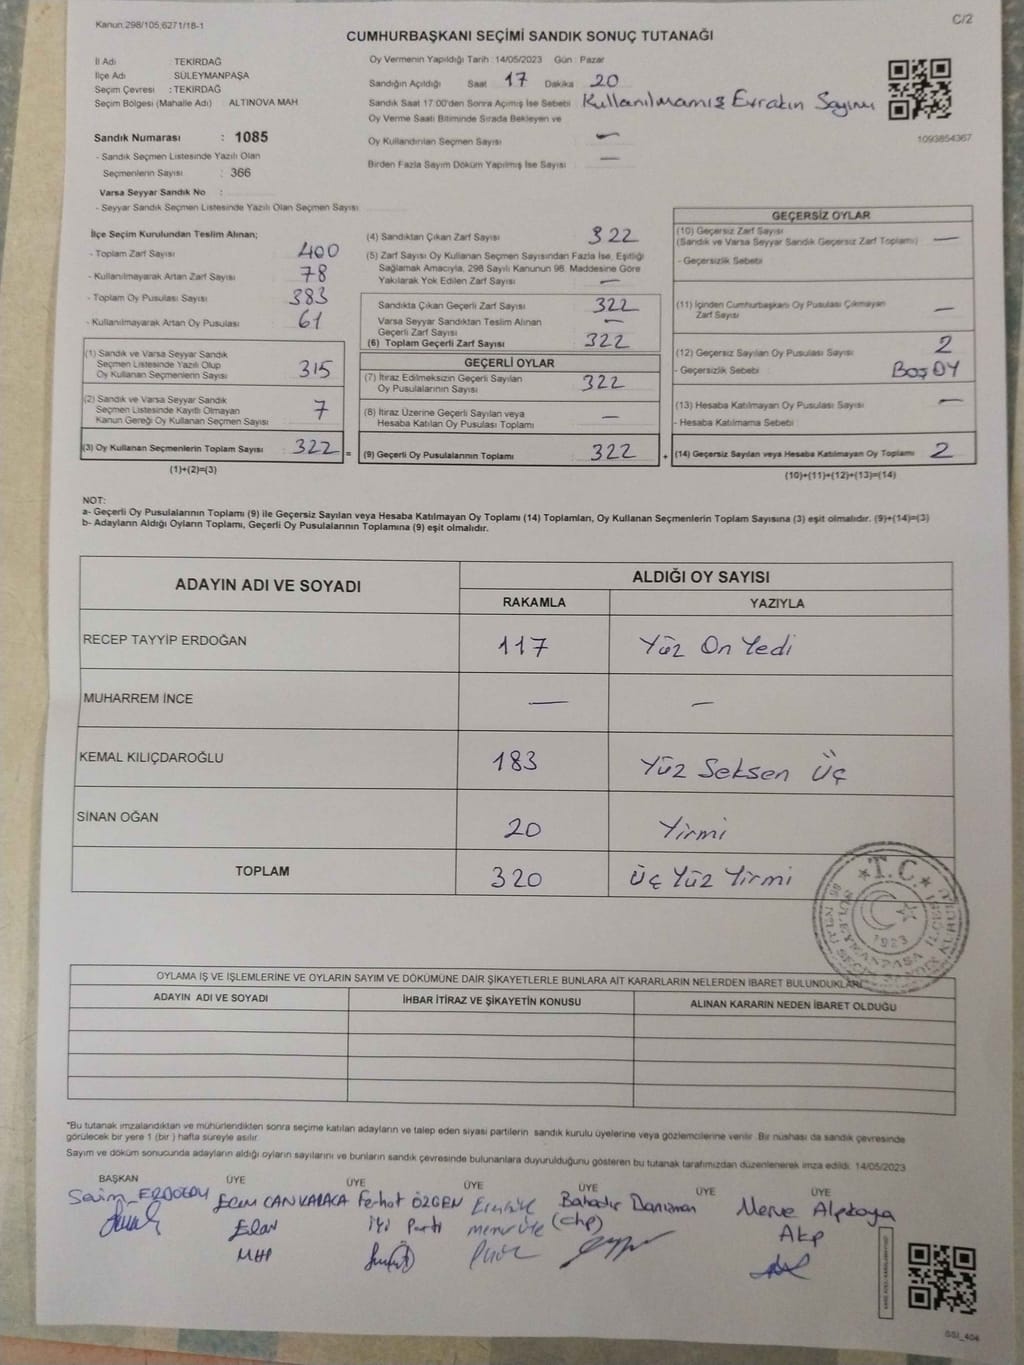 Kanun:298/105,6271/18-1
C/2
CUMHURBAŞKANI SEÇİMİ SANDIK SONUÇ TUTANAĞI
İl Adı : TEKİRDAĞ
İlçe Adı : SÜLEYMANPAŞA
Seçim Çevresi : TEKİRDAĞ
Seçim Bölgesi (Mahalle Adı) ALTINOVA MAH
Sandık Numarası : 1085
- Sandık Seçmen Listesinde Yazılı Olan
Seçmenlerin Sayısı : 366
Varsa Seyyar Sandık No :
- Seyyar Sandık Seçmen Listesinde Yazılı Olan Seçmen Sayısı
Oy Vermenin Yapıldığı Tarih : 14/05/2023 Gün : Pazar
Sandığın Açıldığı Saat 17 Dakika 20
Sandık Saat 17.00'den Sonra Açılmış İse Sebebi Kullanılmamış Evrakın Sayımı
Oy Verme Saati Bitiminde Sırada Bekleyen ve
Oy Kullandırılan Seçmen Sayısı —
Birden Fazla Sayım Döküm Yapılmış İse Sayısı —
1093854367
İlçe Seçim Kurulundan Teslim Alınan;
- Toplam Zarf Sayısı 400
- Kullanılmayarak Artan Zarf Sayısı 78
- Toplam Oy Pusulası Sayısı 383
- Kullanılmayarak Artan Oy Pusulası 61
(1) Sandık ve Varsa Seyyar Sandık
Seçmen Listesinde Yazılı Olup
Oy Kullanan Seçmenlerin Sayısı 315
(2) Sandık ve Varsa Seyyar Sandık
Seçmen Listesinde Kayıtlı Olmayan
Kanun Gereği Oy Kullanan Seçmen Sayısı 7
(3) Oy Kullanan Seçmenlerin Toplam Sayısı 322 =
(1)+(2)=(3)
(4) Sandıktan Çıkan Zarf Sayısı 322
(5) Zarf Sayısı Oy Kullanan Seçmen Sayısından Fazla İse, Eşitliği
Sağlamak Amacıyla, 298 Sayılı Kanunun 98. Maddesine Göre
Yakılarak Yok Edilen Zarf Sayısı —
Sandıkta Çıkan Geçerli Zarf Sayısı 322
Varsa Seyyar Sandıktan Teslim Alınan
Geçerli Zarf Sayısı —
(6) Toplam Geçerli Zarf Sayısı 322
GEÇERLİ OYLAR
(7) İtiraz Edilmeksizin Geçerli Sayılan
Oy Pusulalarının Sayısı 322
(8) İtiraz Üzerine Geçerli Sayılan veya
Hesaba Katılan Oy Pusulası Toplamı —
(9) Geçerli Oy Pusulalarının Toplamı 322 +
GEÇERSİZ OYLAR
(10) Geçersiz Zarf Sayısı
(Sandık ve Varsa Seyyar Sandık Geçersiz Zarf Toplamı) —
- Geçersizlik Sebebi
(11) İçinden Cumhurbaşkanı Oy Pusulası Çıkmayan
Zarf Sayısı —
(12) Geçersiz Sayılan Oy Pusulası Sayısı 2
- Geçersizlik Sebebi BOŞ OY
(13) Hesaba Katılmayan Oy Pusulası Sayısı —
- Hesaba Katılmama Sebebi
(14) Geçersiz Sayılan veya Hesaba Katılmayan Oy Toplamı 2
(10)+(11)+(12)+(13)=(14)
NOT:
a- Geçerli Oy Pusulalarının Toplamı (9) ile Geçersiz Sayılan veya Hesaba Katılmayan Oy Toplamı (14) Toplamları, Oy Kullanan Seçmenlerin Toplam Sayısına (3) eşit olmalıdır. (9)+(14)=(3)
b- Adayların Aldığı Oyların Toplamı, Geçerli Oy Pusulalarının Toplamına (9) eşit olmalıdır.
ADAYIN ADI VE SOYADI
ALDIĞI OY SAYISI
RAKAMLA YAZIYLA
RECEP TAYYİP ERDOĞAN 117 Yüz On Yedi
MUHARREM İNCE — —
KEMAL KILIÇDAROĞLU 183 Yüz Seksen Üç
SİNAN OĞAN 20 Yirmi
TOPLAM 320 Üç Yüz Yirmi
T.C.
1923
OYLAMA İŞ VE İŞLEMLERİNE VE OYLARIN SAYIM VE DÖKÜMÜNE DAİR ŞİKAYETLERLE BUNLARA AİT KARARLARIN NELERDEN İBARET BULUNDUKLARI
ADAYIN ADI VE SOYADI İHBAR İTİRAZ VE ŞİKAYETİN KONUSU ALINAN KARARIN NEDEN İBARET OLDUĞU
*Bu tutanak imzalandıktan ve mühürlendikten sonra seçime katılan adayların ve talep eden siyasi partilerin sandık kurulu üyelerine veya gözlemcilerine verilir. Bir nüshası da sandık çevresinde
görülecek bir yere 1 (bir) hafta süreyle asılır.
Sayım ve döküm sonucunda adayların aldığı oyların sayılarını ve bunların sandık çevresinde bulunanlara duyurulduğunu gösteren bu tutanak tarafımızdan düzenlenerek imza edildi. 14/05/2023
BAŞKAN ÜYE ÜYE ÜYE ÜYE ÜYE ÜYE
Ferhat ÖZGEN Bahadır Danışman Merve Alpkaya
İYİ Parti (Chp) Akp
MHP
GSI_404